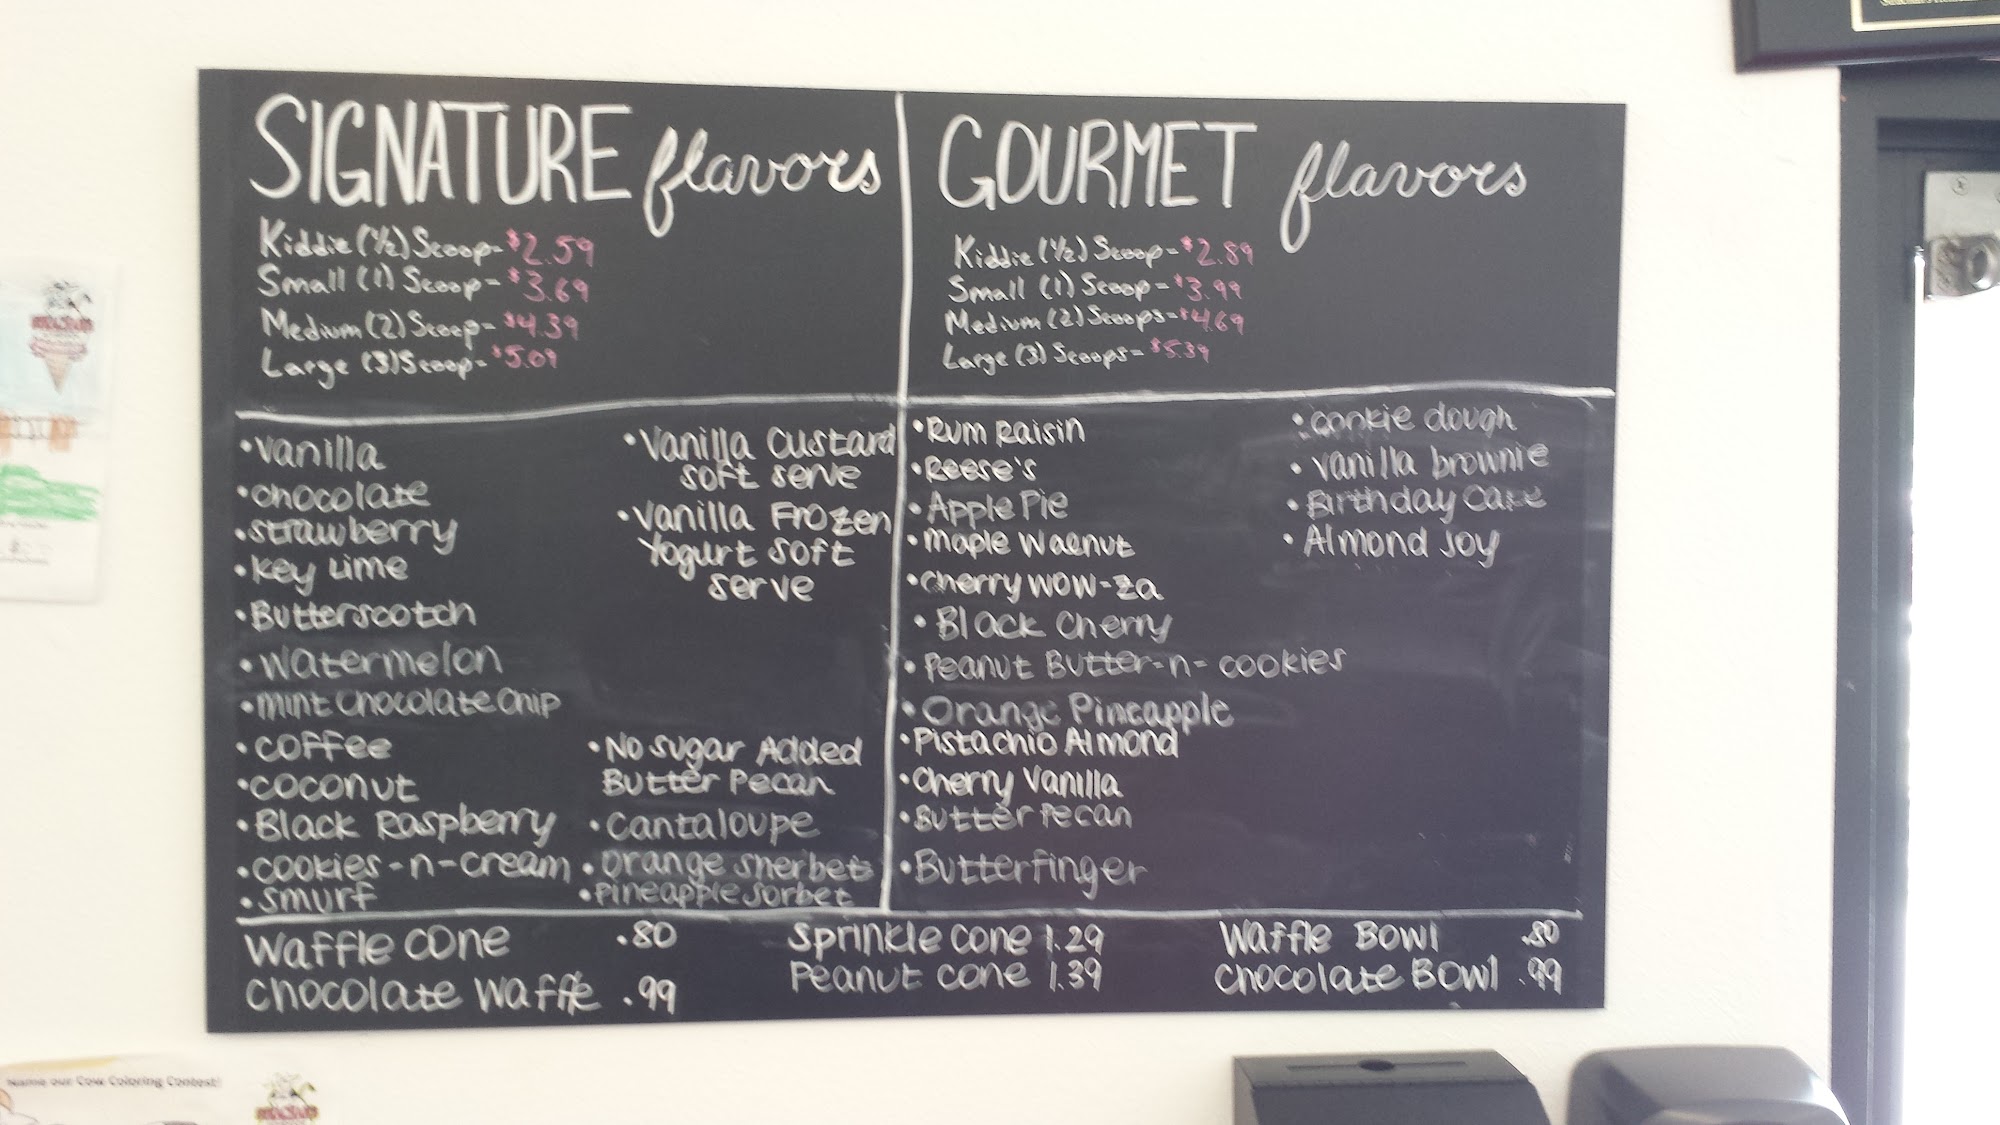 SIGNATURE flavors
Kiddie (1/2) Scoop- $2.59
Small (1) Scoop- $3.69
Medium (2) Scoop- $4.39
Large (3) Scoop- $5.09
• Vanilla
• chocolate
• strawberry
• key lime
• Butterscotch
• watermelon
• mint chocolate chip
• coffee
• coconut
• Black Raspberry
• cookies-n-cream
• smurf
• Vanilla Custard
soft serve
• Vanilla Frozen
Yogurt soft
serve
• No sugar Added
Butter Pecan
• Cantaloupe
• orange sherbet
• pineapple sorbet
GOURMET flavors
Kiddie (1/2) Scoop- $2.89
Small (1) Scoop- $3.99
Medium (2) Scoops- $4.69
Large (3) Scoops- $5.39
• Rum Raisin
• Reese's
• Apple Pie
• maple walnut
• cherry wow-za
• Black cherry
• Peanut Butter-n-cookies
• Orange Pineapple
• Pistachio Almond
• Cherry Vanilla
• Butter Pecan
• Butterfinger
• cookie dough
• vanilla brownie
• Birthday Cake
• Almond Joy
Waffle cone .80
chocolate waffle .99
Sprinkle cone 1.29
Peanut cone 1.39
Waffle Bowl .80
chocolate Bowl .99
Name our Cow Coloring Contest!